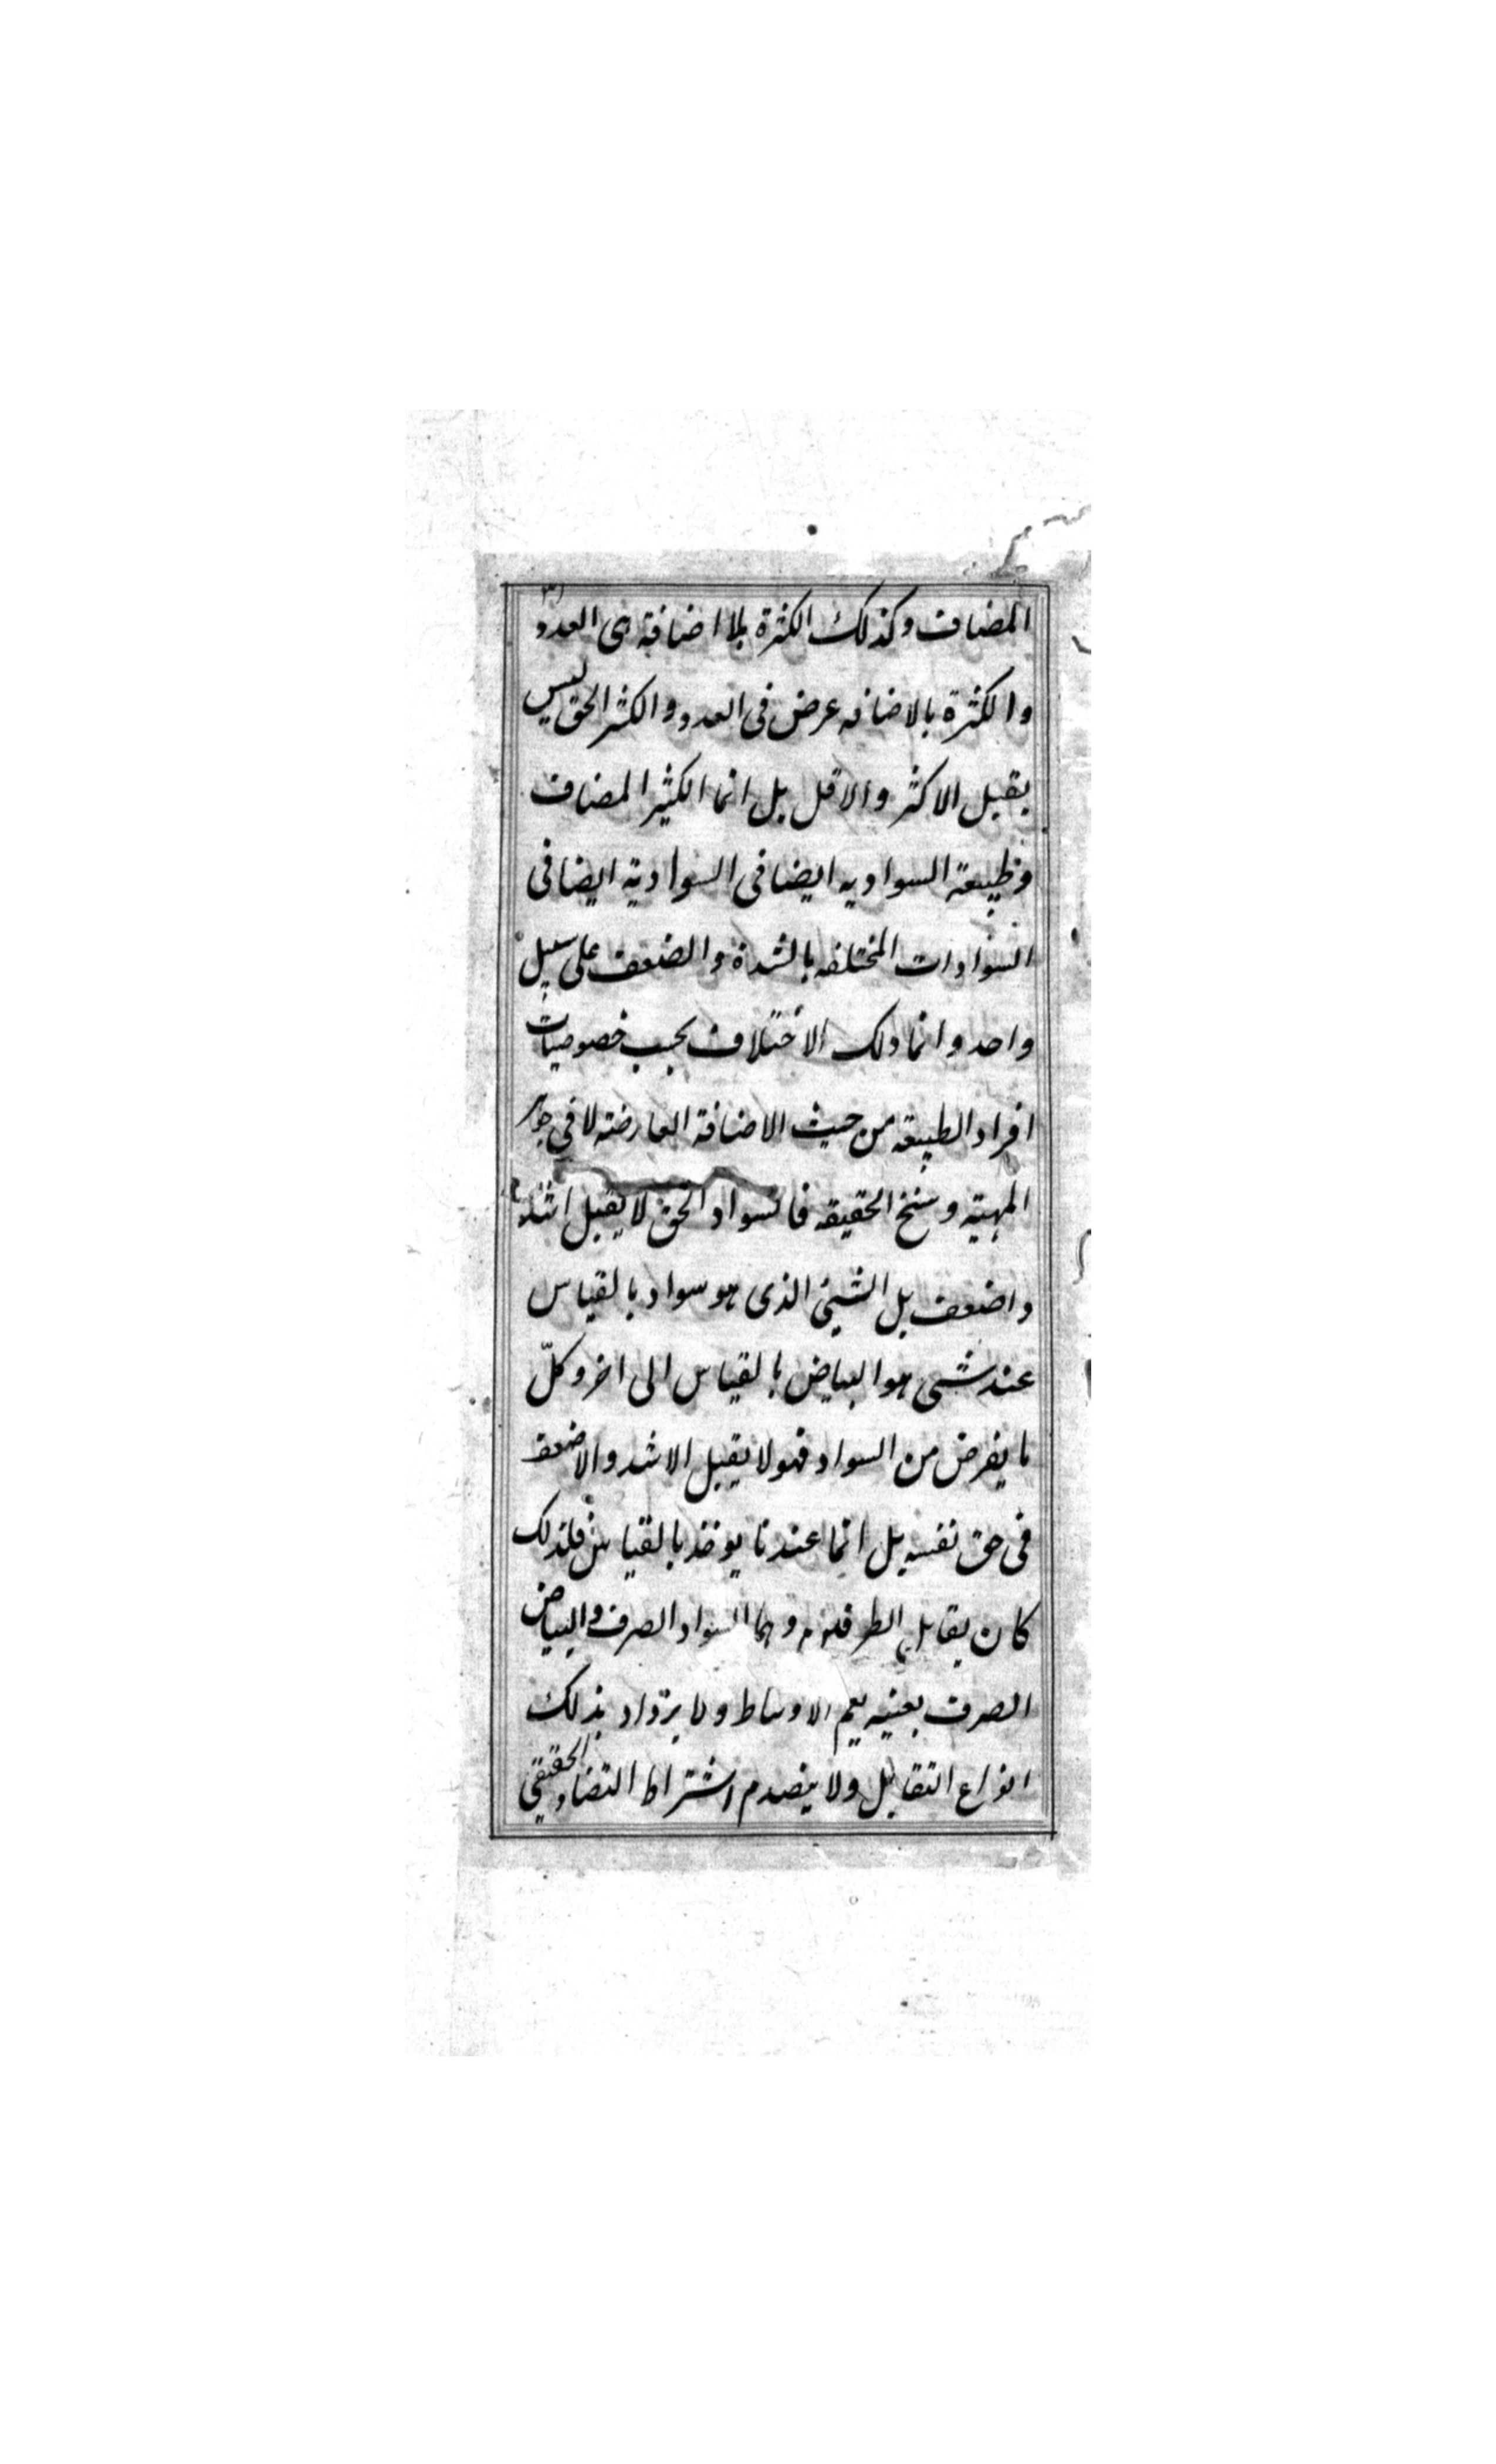 المضاف وكذلك الكثرة بلا اضافة هى العدد
والكثرة بالاضافه عرض فى العدد والكثير الحق ليس
يقبل الاكثر والاقل بل انما الكثير المضاف
وطبيعة السواديه ايضا فى السوادية ايضا فى
السوادات المختلفه بالشدة والضعف على سبيل
واحد وانما ذلك الاختلاف بحسب خصوصيات
افراد الطبيعه من حيث الاضافة العارضة لا فى جوهر
المهية وسنخ الحقيقه فالسواد الحق لا يقبل اشد
واضعف بل الشيئ الذى هو سواد بالقياس
عند شىء هو البياض بالقياس الى اخر وكلّ
ما يفرض من السواد فهو لا يقبل الاشد والاضعف
فى حق نفسه بل انما عندنا يوخذ بالقياس فلذلك
كان يقابل وهما السواد الصرف والبياض
الصرف بعينه يعم الاوساط ولا يزداد بذلك
انواع التقابل ولا ينصدم اشتراط التضاد الحقيقى